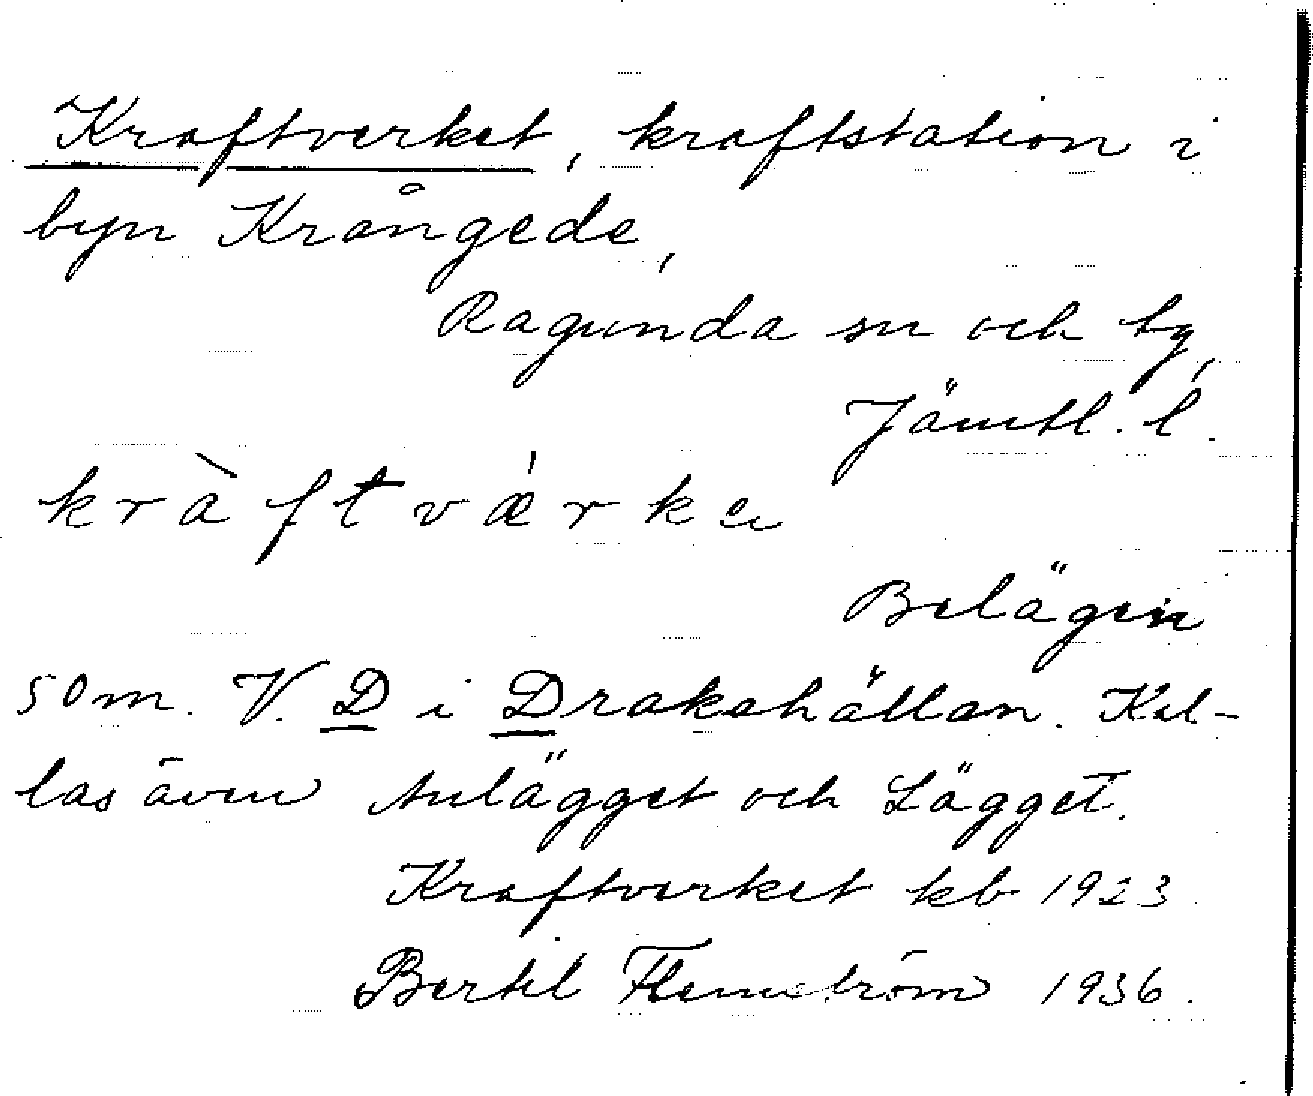 Kraftverket, kraftstation i
byn Krångede,
Ragunda sn och by,
Jämtl. l.
kràftvǽrke
Belägen
50m. V. D i Drakahällan. Kal-
las även Anlägget och Lägget.
Kraftverket kb 1923.
Bertil Flemström 1936.